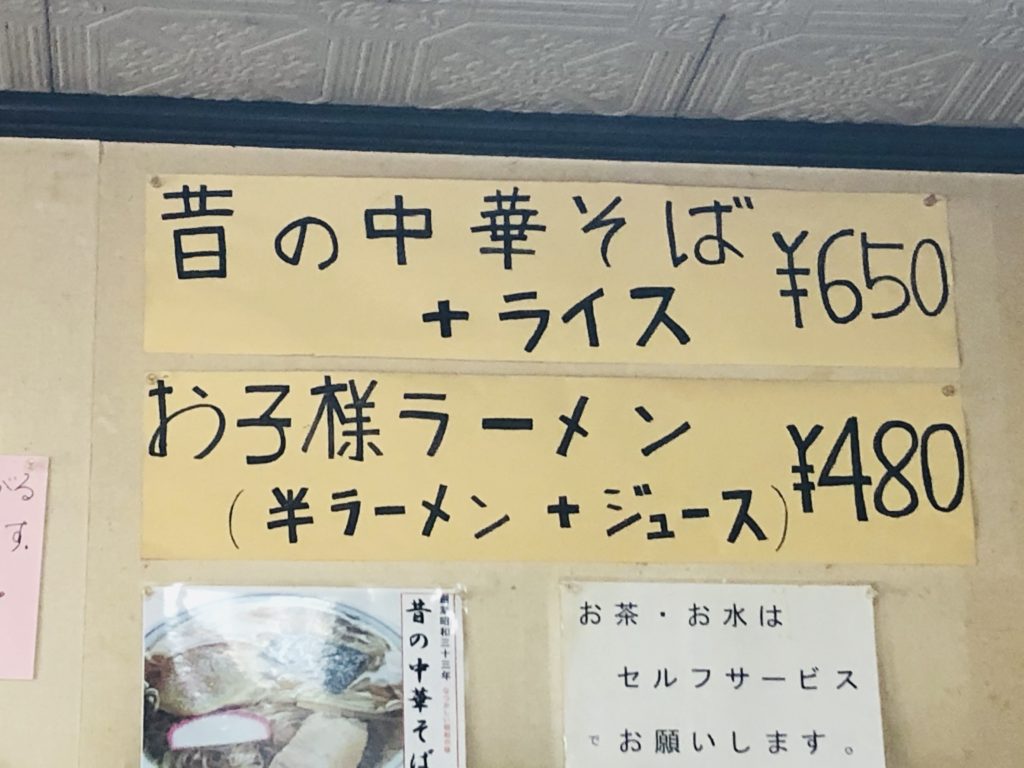 昔の中華そば ¥650
+ライス
お子様ラーメン ¥480
(半ラーメン+ジュース)
がる
す.
創業昭和三十三年
昔の中華そば
お茶・お水は
セルフサービス
で お願いします。